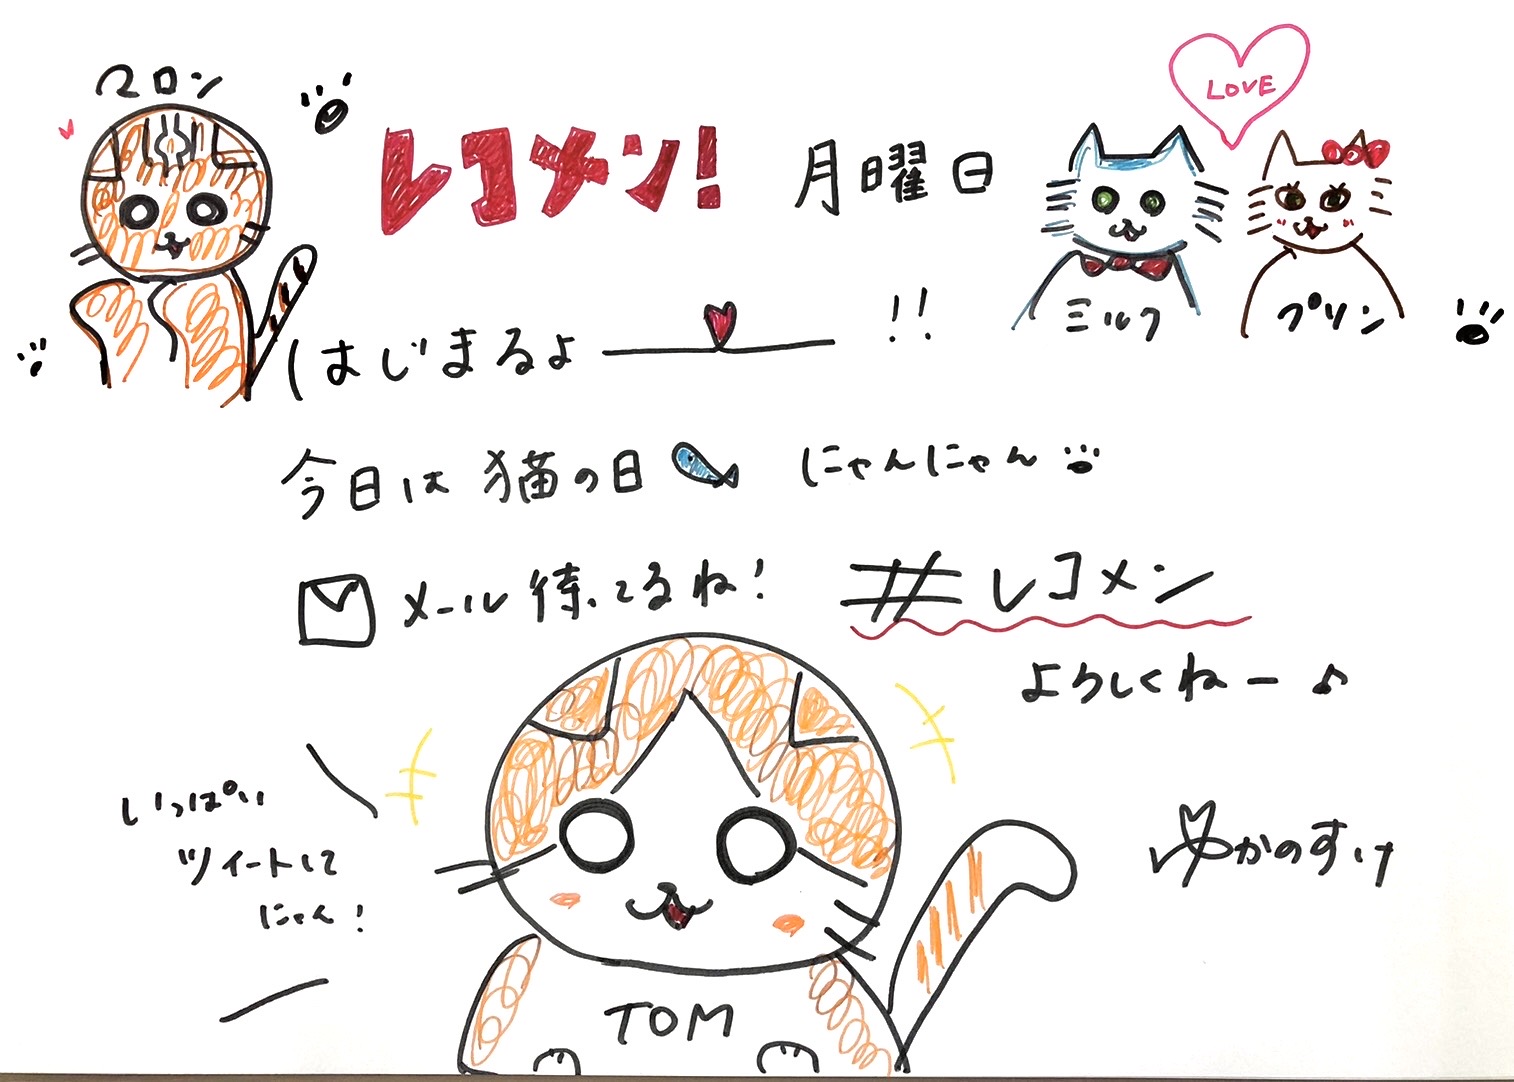 マロン
レコメン! 月曜日
LOVE
ミルク
プリン
はじまるよー!!
今日は猫の日 にゃんにゃん
メール待ってるね! #レコメン
よろしくねー♪
いっぱい
ツイートして
にゃん!
ゆかのすけ
TOM